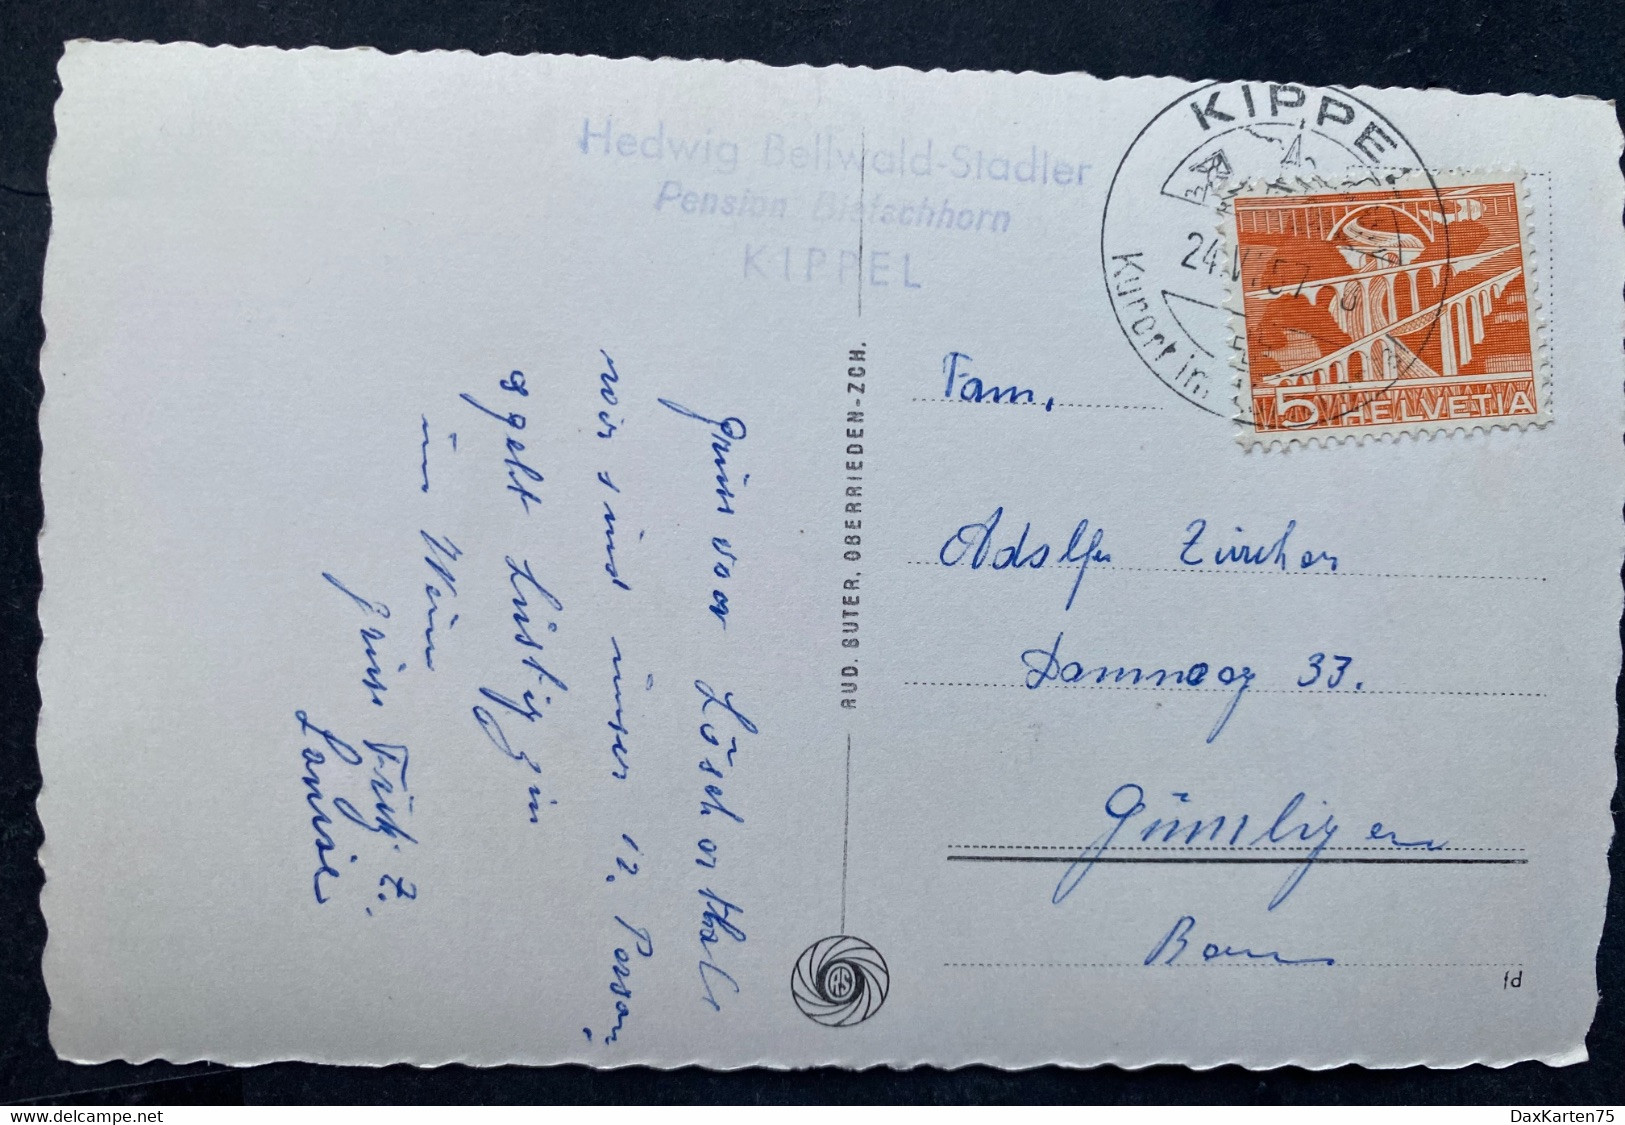 Hedwig Bellwald-Stadler
Pension Bietschhorn
KIPPEL
KIPPEL
24.VI.57
Kurort im
5 HELVETIA
Gruss vor Löschorthal
wir sind unser 12. Person.
s geht Lustig zu
im Wein
gruss Fritz Z.
Louise
RUD. SUTER, OBERRIEDEN-ZCH.
RS
Fam.
Adolf Zürcher
Dammweg 33.
Gümligen
Bern
fd
www.delcampe.net
DaxKarten75